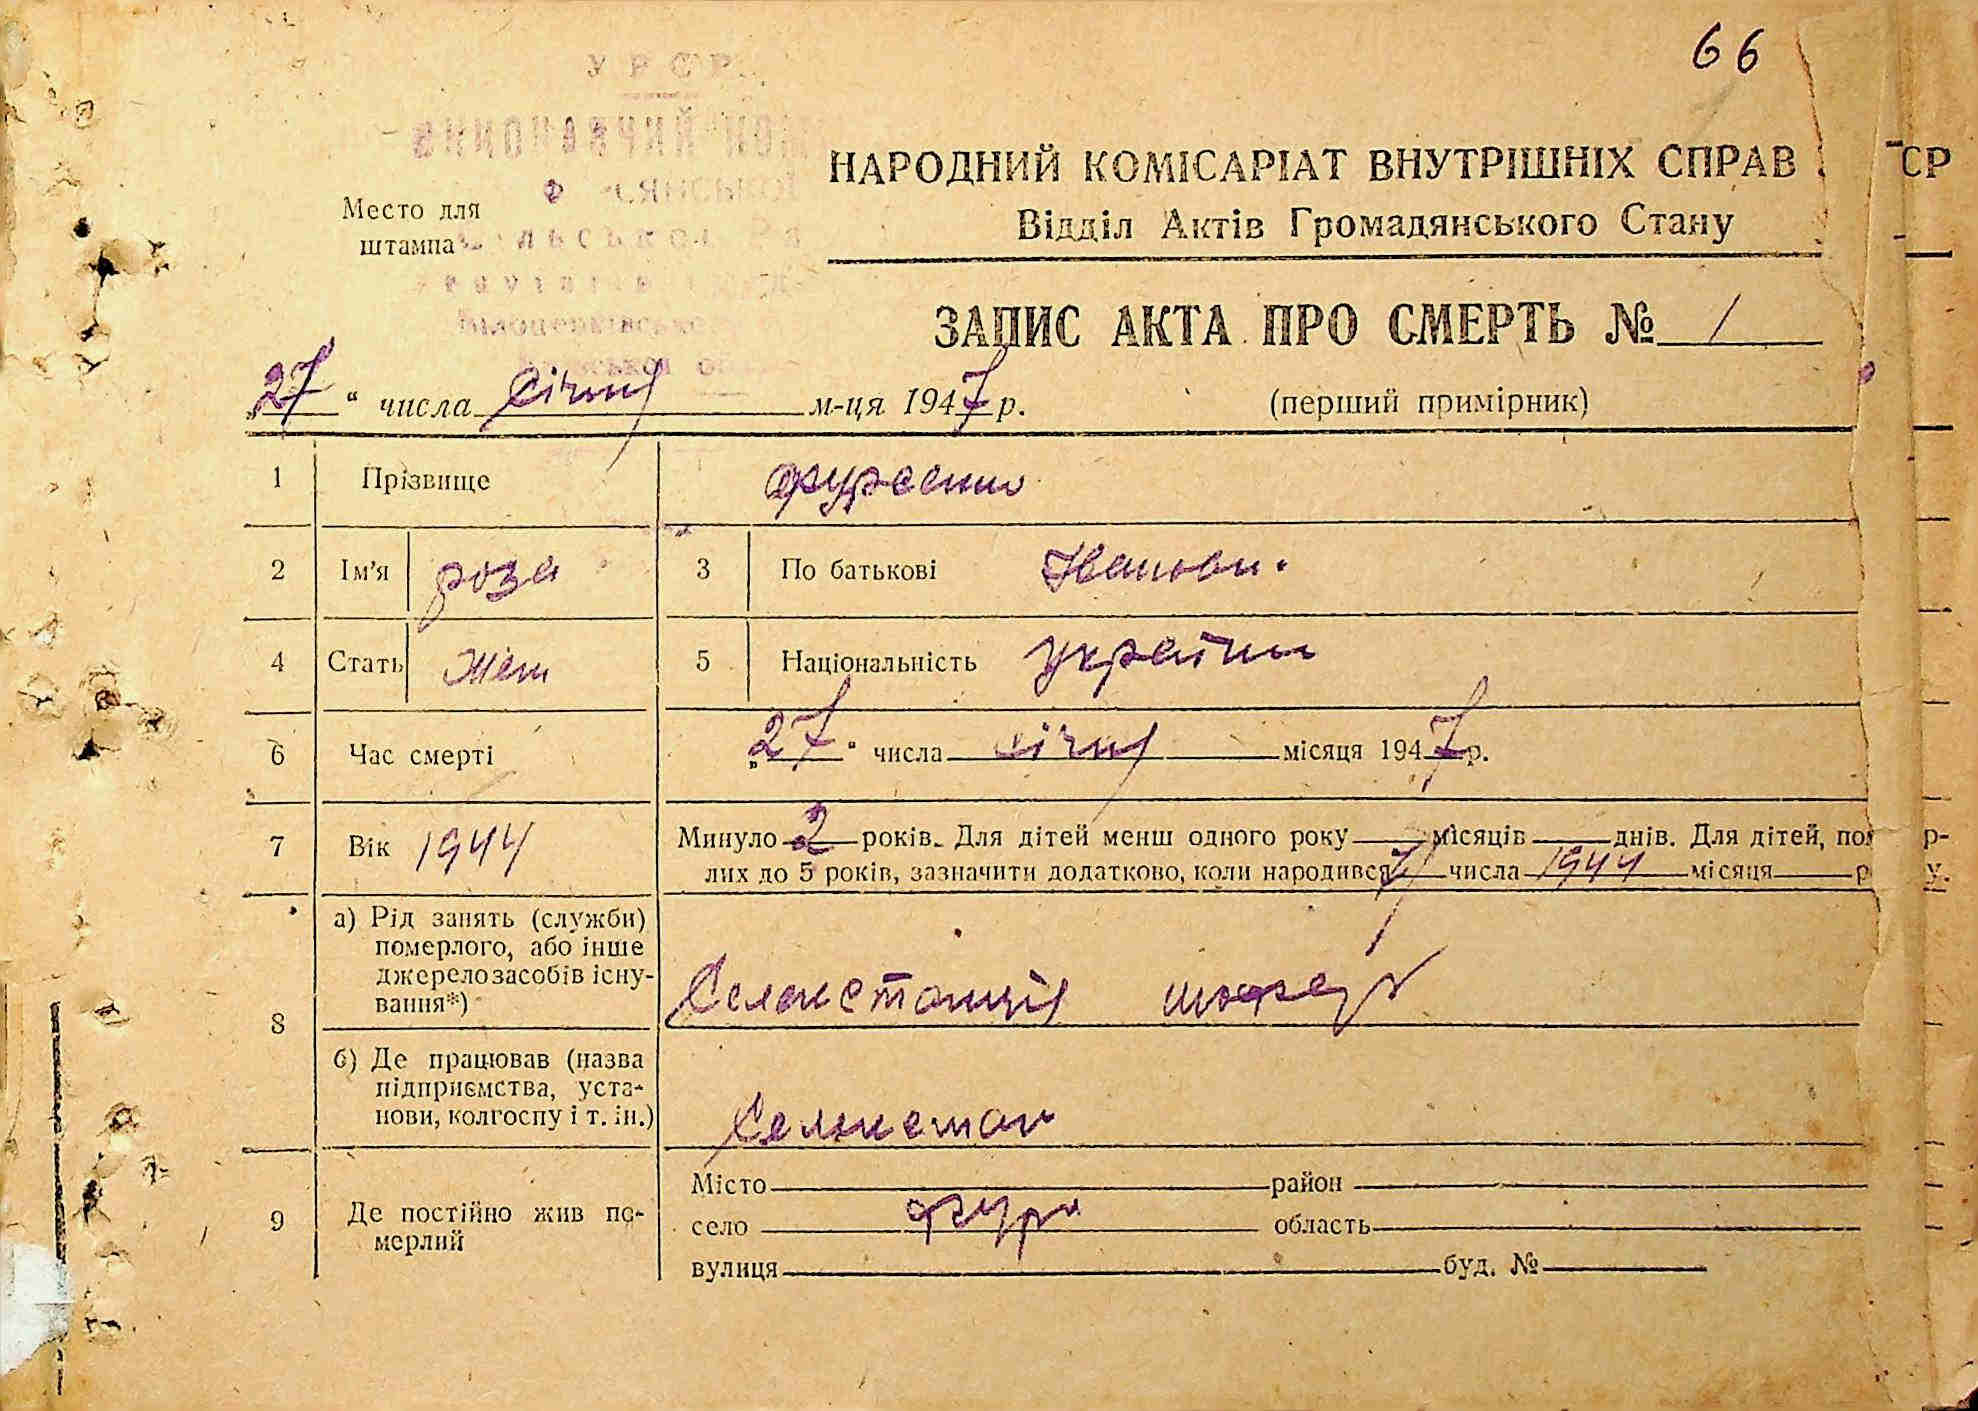 66
УРСР
НАРОДНИЙ КОМІСАРІАТ ВНУТРІШНІХ СПРАВ СР
Место для
штампа
Відділ Актів Громадянського Стану
ЗАПИС АКТА ПРО СМЕРТЬ № 1
„27“ числа січня м-ця 1947 р.
(перший примірник)
1 Прізвище
2 Ім'я роза 3 По батькові Іванови.
4 Стать жен 5 Національність україн
6 Час смерті „27“ числа січня місяця 1947 р.
7 Вік 1944 Минуло 2 років. Для дітей менш одного року місяців днів. Для дітей, пом р-
лих до 5 років, зазначити додатково, коли народився числа 1944 місяця р у.
8 а) Рід занять (служби)
померлого, або інше
джерело засобів існу-
вання*)
б) Де працював (назва
підприємства, уста-
нови, колгоспу і т. ін.)
9 Де постійно жив по-
мерлий
Місто район
село Фурси область
вулиця буд. №